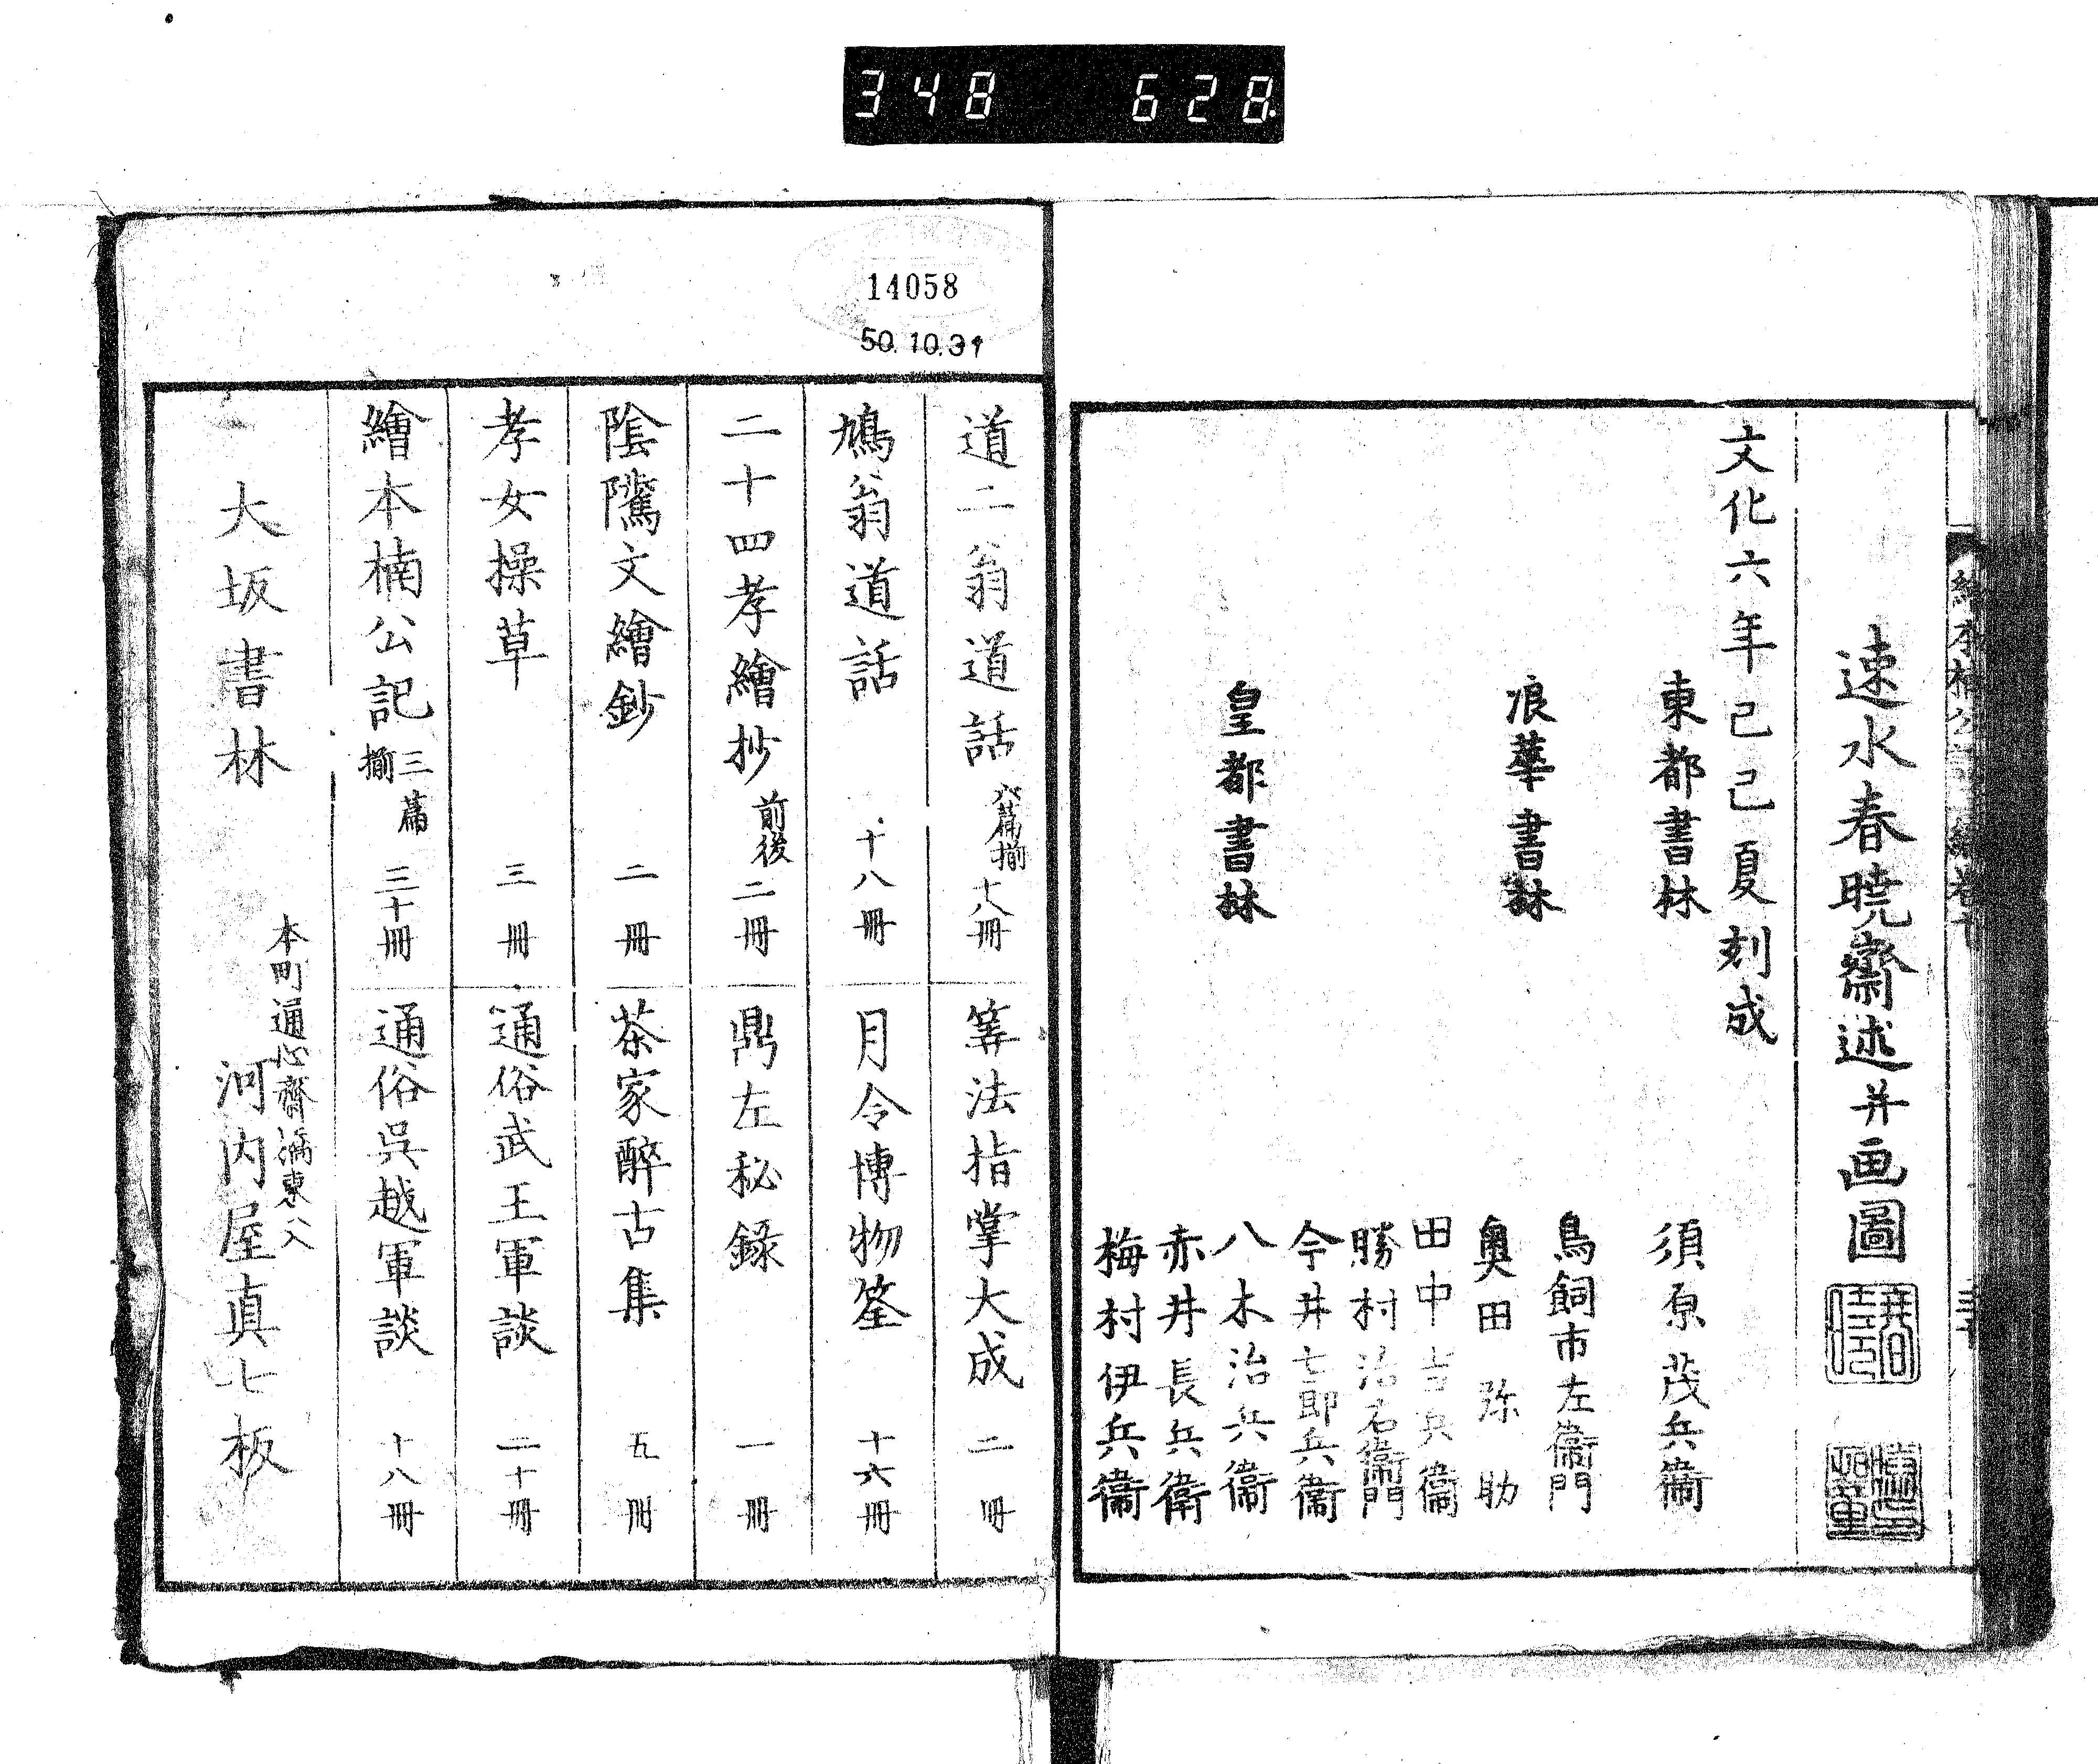 348 628
速水春暁齋述并画圖
文化六年己巳夏刻成
東都書林
須原茂兵衞
浪華書林
鳥飼市左衞門
奥田弥助
田中吉兵衞
皇都書林
勝村治右衞門
今井七郎兵衞
八木治兵衞
赤井長兵衞
梅村伊兵衞
14058
50.10.31
道二翁道話 六篇揃 十八冊
筭法指掌大成 二冊
鳩翁道話 十八冊
月令博物筌 十六冊
二十四孝繪抄 前後二冊
鼎左秘錄 一冊
陰隲文繪鈔 二冊
茶家醉古集 五冊
孝女操草 三冊
通俗武王軍談 二十冊
繪本楠公記 三篇揃 三十冊
通俗呉越軍談 十八冊
大坂書林
本町通心齋橋東へ入
河内屋真七板